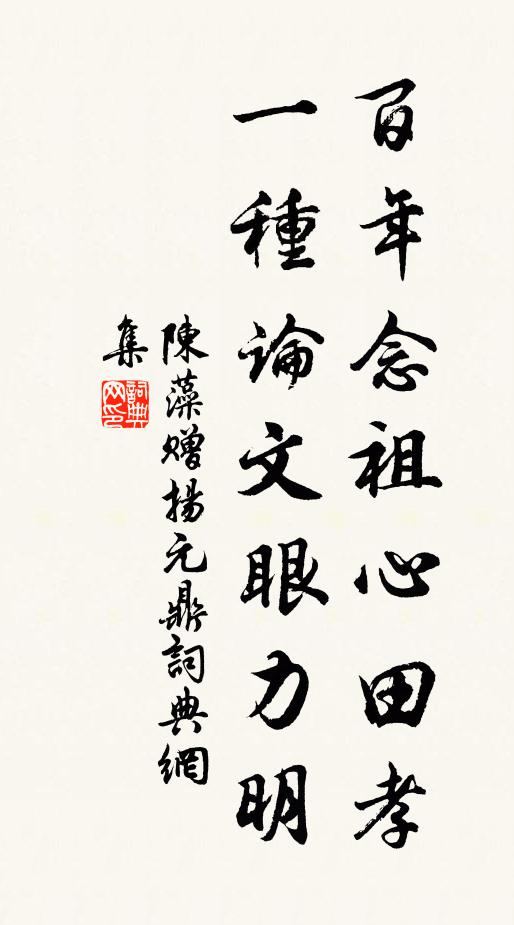 百年念祖心田孝
一種論文眼力明
陳藻贈揚元鼎詞典網
集
詞典
网印